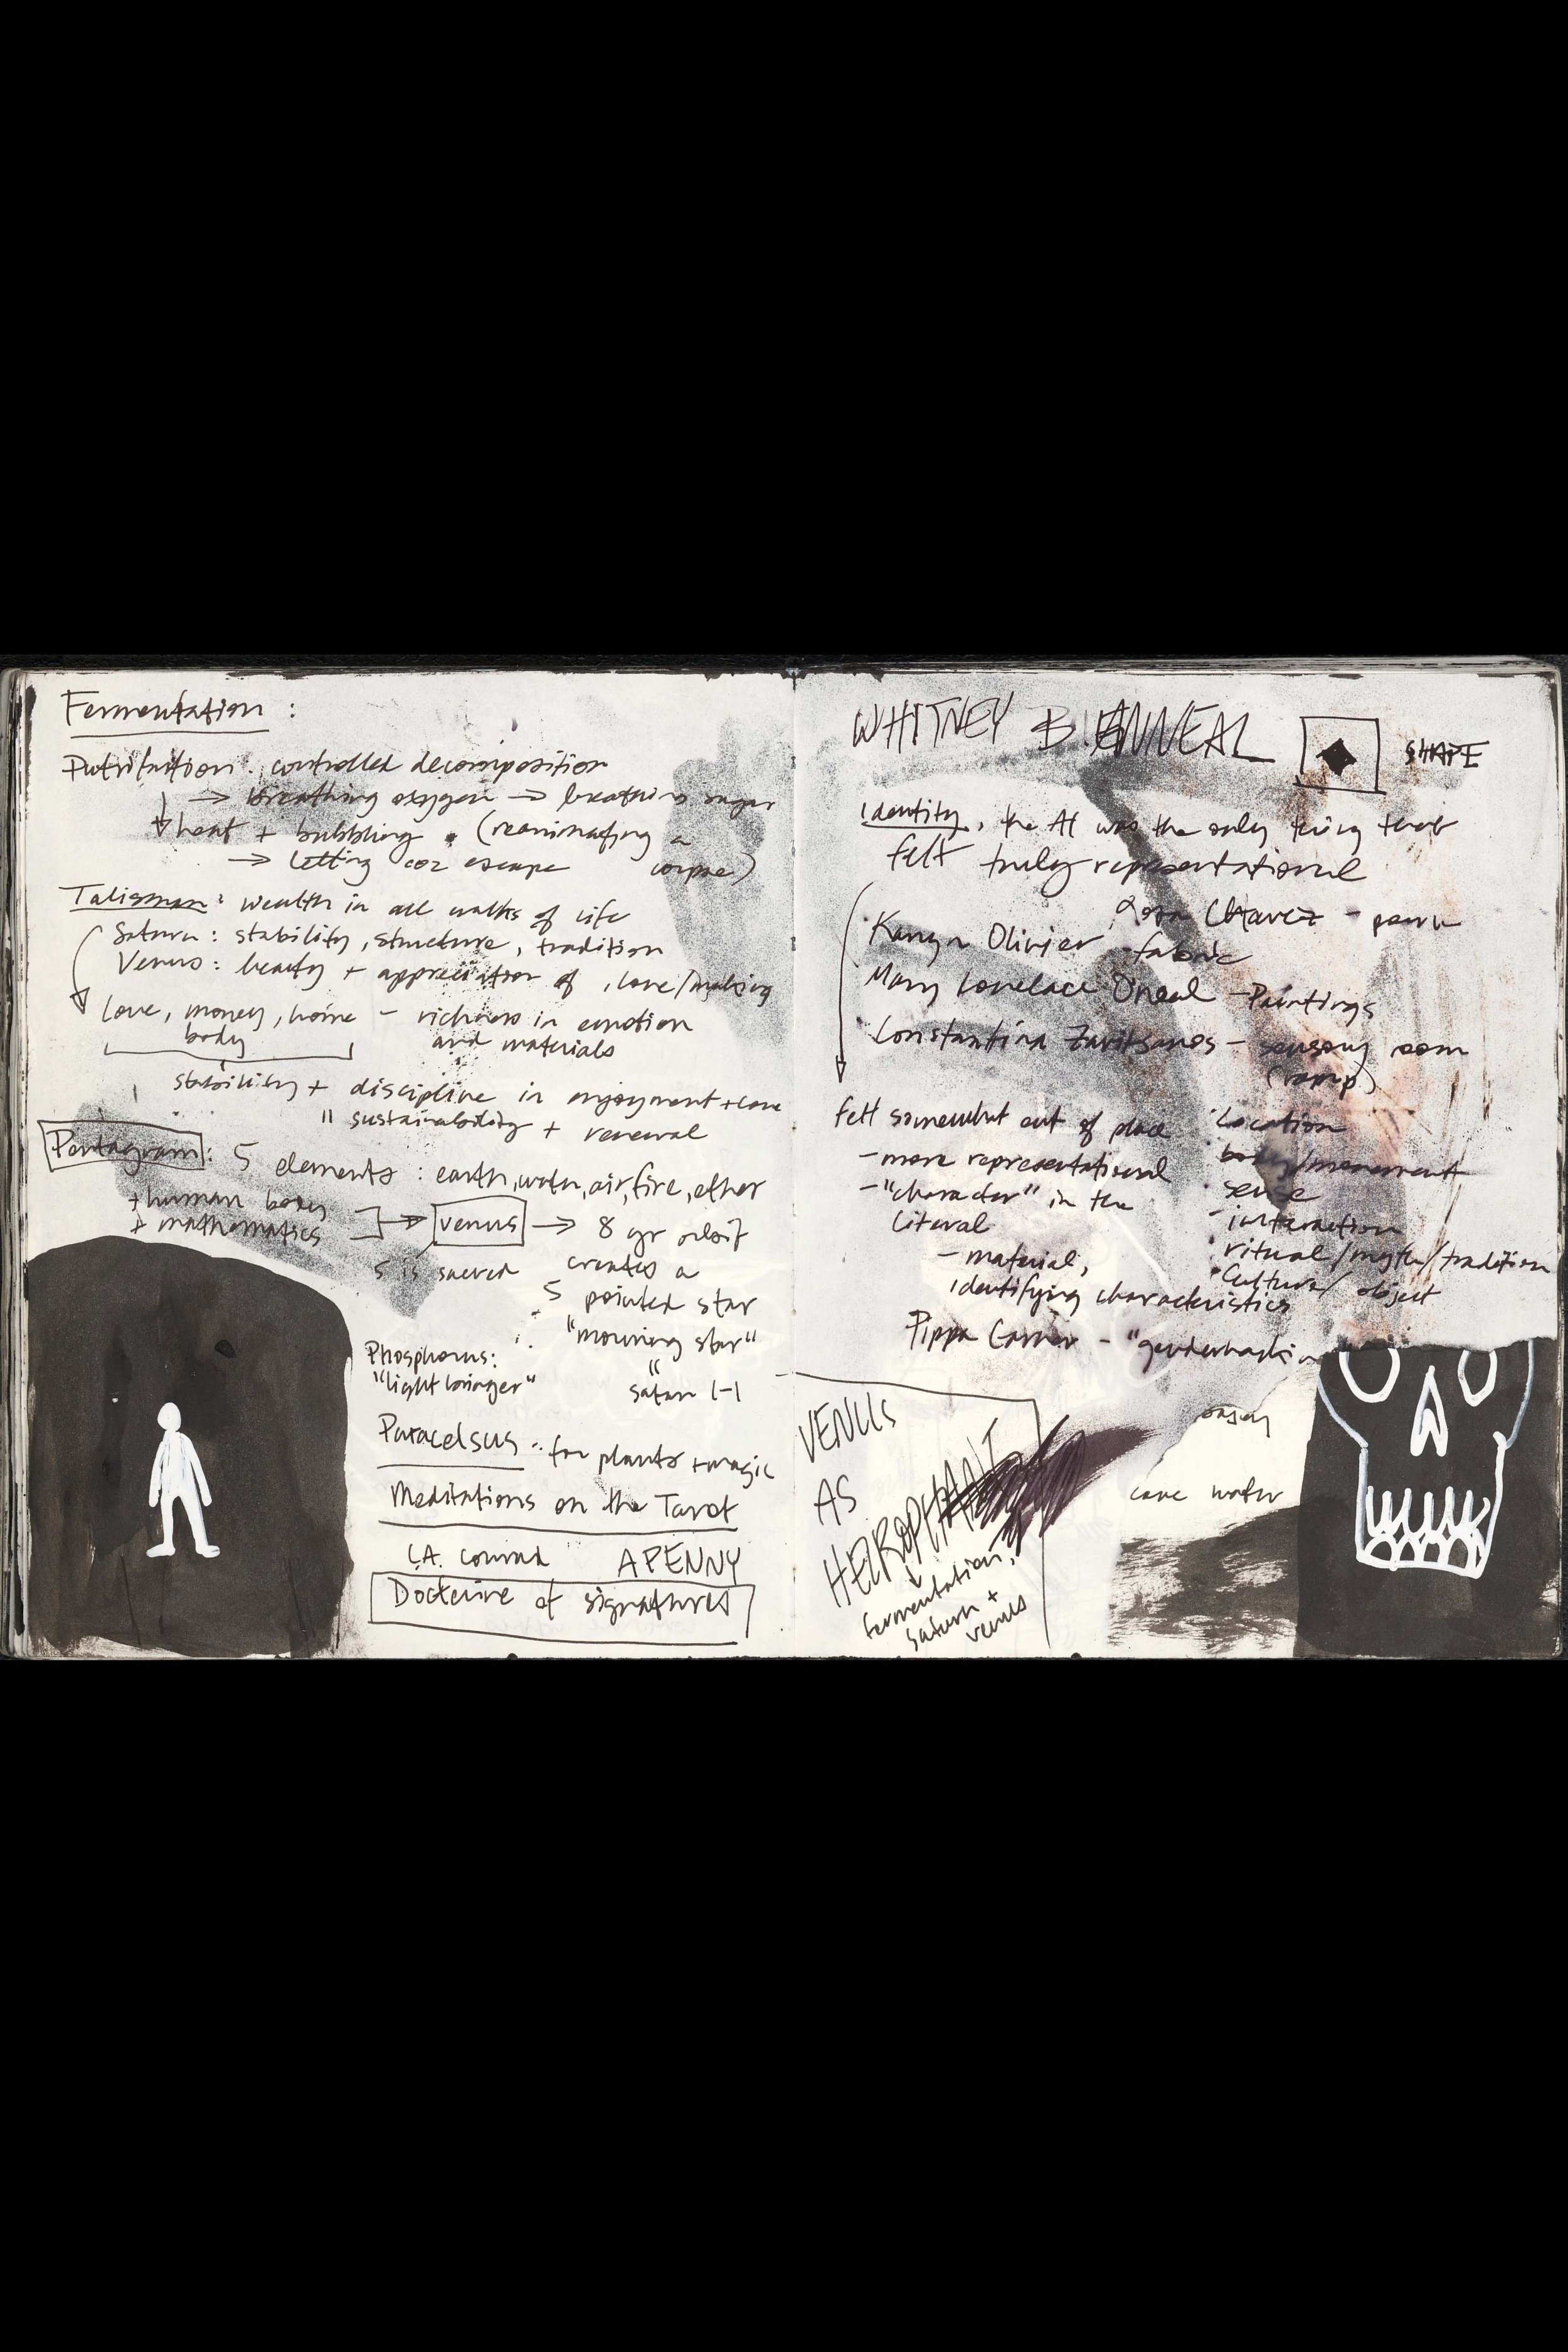 Fermentation :
Putrifaction : controlled decomposition
→ breathing oxygen → breathing sugar
heat + bubbling . (reanimating a corpse)
→ letting co2 escape
Talisman : wealth in all walks of life
Saturn : stability, structure, tradition
Venus : beauty + appreciation of , love/making
Love, money, home - richness in emotion
body and materials
stability + discipline in enjoyment + love
" sustainability + renewal
Pentagram : 5 elements : earth, water, air, fire, ether
+ human body
+ mathematics → venus → 8 yr orbit
5 is sacred creates a
5 pointed star
"mourning star"
Phosphorus: "
"light bringer" satan (-)
Paracelsus .. for plants + magic
Meditations on the Tarot
C.A. Conrad APENNY
Doctcire of signatures
WHITNEY BIENNEAL SHAPE
identity, the AI was the only thing that
felt truly representational
Chavez -
Olivier - fabric
Mary Lovelace Oneal - Paintings
Constantina Zavitsanos - sensory room
(ramp)
felt somewhat out of place
- more representational
- "character" in the
literal
- material,
identifying characteristics
· Location
body/movement
sense
- interaction
· ritual/myth/tradition
· Culture/ object
Pippa Garner -
VENUS
AS
fermentation,
saturn +
venus
cave water